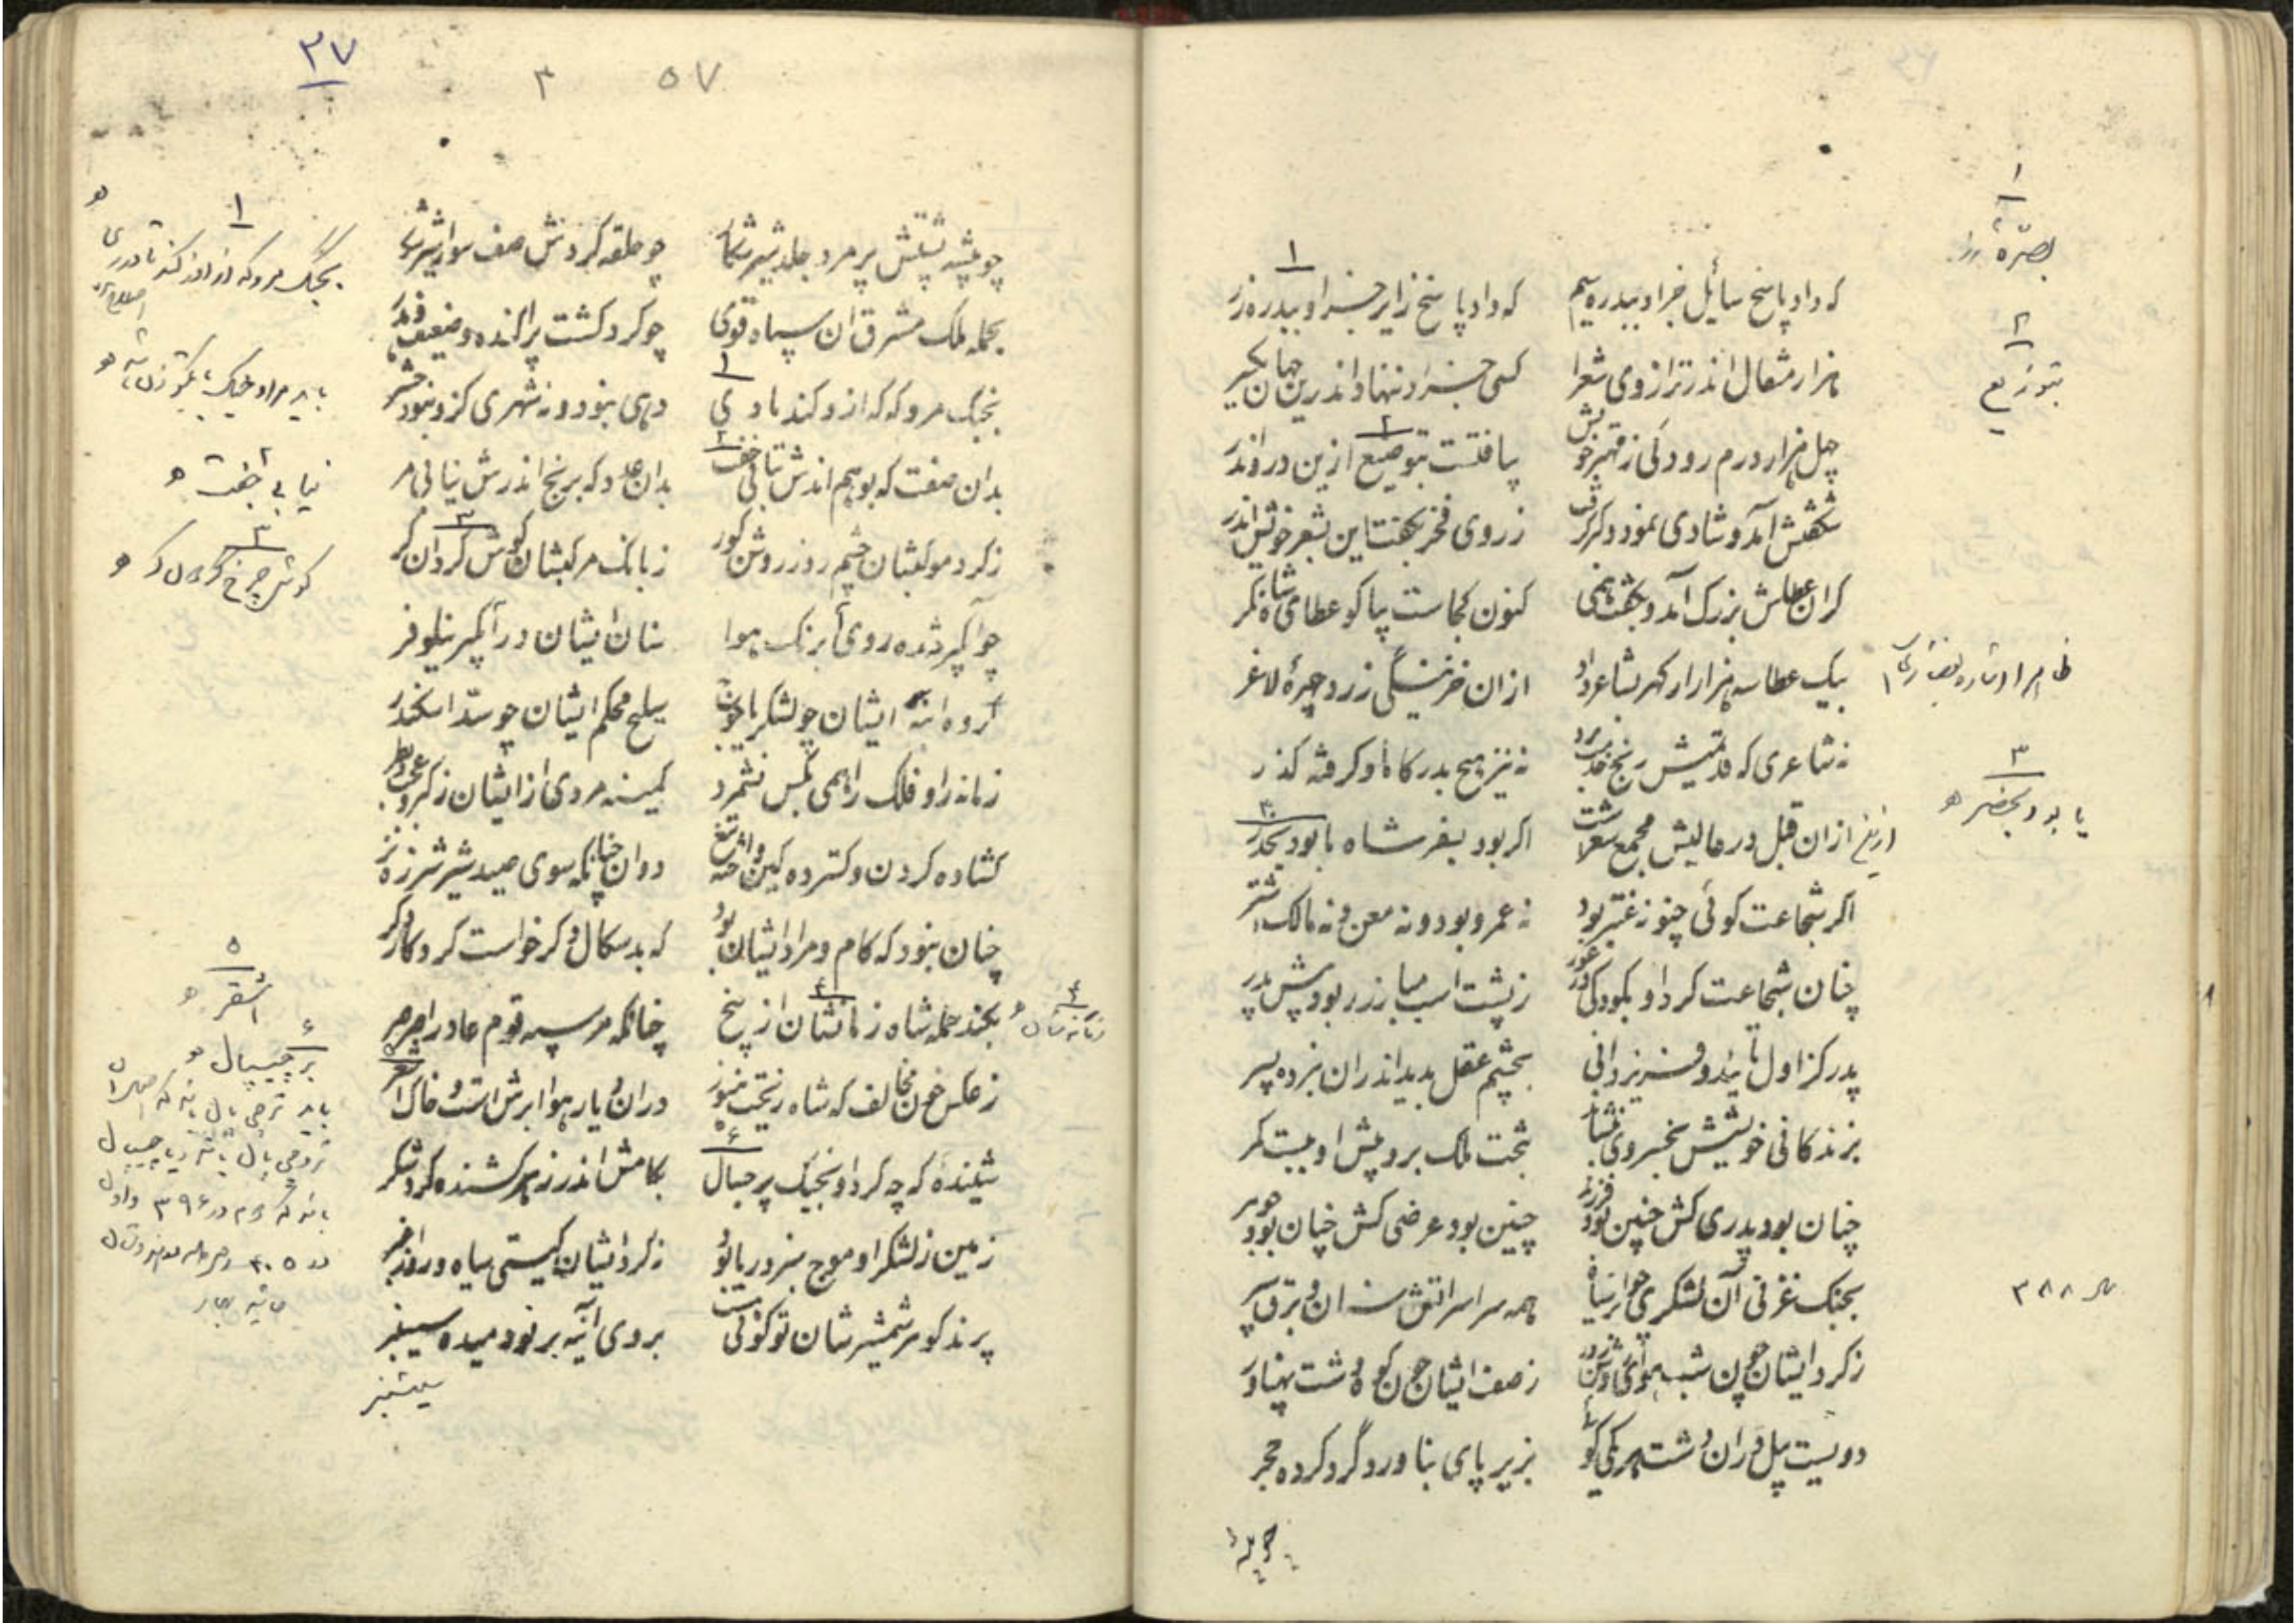 که داد پاسخ سائل جز او ببدره سیم که داد پاسخ زایر جز او ببدره زر
هزار مثقال اندر ترازوی شعرا کسی جز او ننهاد اندرین جهان یکسر
چهل هزار درم رودکی ز مهتر خویش بیافتست بتوضیع ازین در و اندر
شکفتش آمد و شادی نمود و کبر گرفت ز روی فخر بگفت این بشعر خویش اندر
گر آن عطاش بزرگ آمد و شگفت همی کنون کجاست بیا گو عطای شاه نگر
بیک عطا سه هزار از گهر بشاعر داد ازان خزینگی زرد چهرهٔ لاغر
نه شاعری که قدیمیش رنج خدمت بود نه نیز هیچ بدرگاه او گرفته گذر
از قبل در عالیش مجمع شعراست اگر بود بسفر شاه یا بود بحضر
اگر شجاعت گوئی چنو نه عنتر بود نه عمرو بود و نه معن و نه مالک اشتر
چنان شجاعت کرد او بکودکی در غور ز پشت اسب مبارز ربود پیش پدر
پدر کز اول تأیید و فر یزدانی بچشم عقل بدید اندران نبرده پسر
بزندگانی خویشش بخسروی بنشاند بتخت ملک بر و پیش او ببست کمر
چنان بود پدری کش چنین بود فرزند چنین بود عرضی کش چنان بود جوهر
بجنگ غزنی آن لشکری چو ابر سیاه همه سراسر آتش سنان و برق سپر
ز گرد ایشان چون شب هوای روشن روز ز صف ایشان چون کوه دشت پهناور
دویست پیل دران دشت هر یکی گویی بزیر پای بناورد گرد کرده حجر
۱
بصرّه زر
۲
بتوزیع
۳
یا بود بحضر
۳۸۸
۲۷
۳ ۵۷
چو بیشه پشتش پر مرد جلد شیرشکار چو حلقه کردنش صف سوار شیرشکر
بجمله ملک مشرق ان سپاه قوی چو کرد گشت پراکنده و ضعیف
بجنگ مرو که از اوزکند تا در ری دهی نبود و نه شهری کزو نبود حشر
بدان صفت که بوهم اندرش نیابی جفت بدان عدد که برنج اندرش نیابی مر
ز گرد موکبشان چشم روز روشن کور ز بانگ مرکبشان گوش گردان کر
چو آبگیر شده روی ابر رنگ هوا سنان ایشان در آبگیر نیلوفر
گروه ایشان چو لشکر یاجوج سلیح محکم ایشان چو سد اسکندر
زمانه را و فلک را همی بکس نشمرد کمینه مردی از ایشان ز کبر و عجب و بطر
کشاده گردن و گسترده کین و آخته تیغ دوان چنانکه سوی صید شیر شرزه نر
چنان نبود که کام و مراد ایشان بود که بدسگال دگر خواست کردگار دگر
بکند حمله شاه زمانشان از بیخ چنانکه مر سپه قوم عاد را صرصر
ز عکس خون مخالف که شاه ریخت هنوز دران دیار هوا ابرش است و خاک اشقر
شنیدهٔ که چه کرد او بجنگ پر جیپال بکامش اندر زهر کشنده کرد شکر
زمین ز لشکر او موج سبز دریا بود ز گرد ایشان گیتی سیاه و روز
پرند گوهر شمشیرشان تو گوئی هست بروی آینه بر نو دمیده سیسنبر
سیسنبر
۱
بجنگ مرو که از اوزکند تا در ری
۲
نیابی جفت
۳
گوش چرخ گردان کر
۴
۵
اشقر
۶
بر چیپال